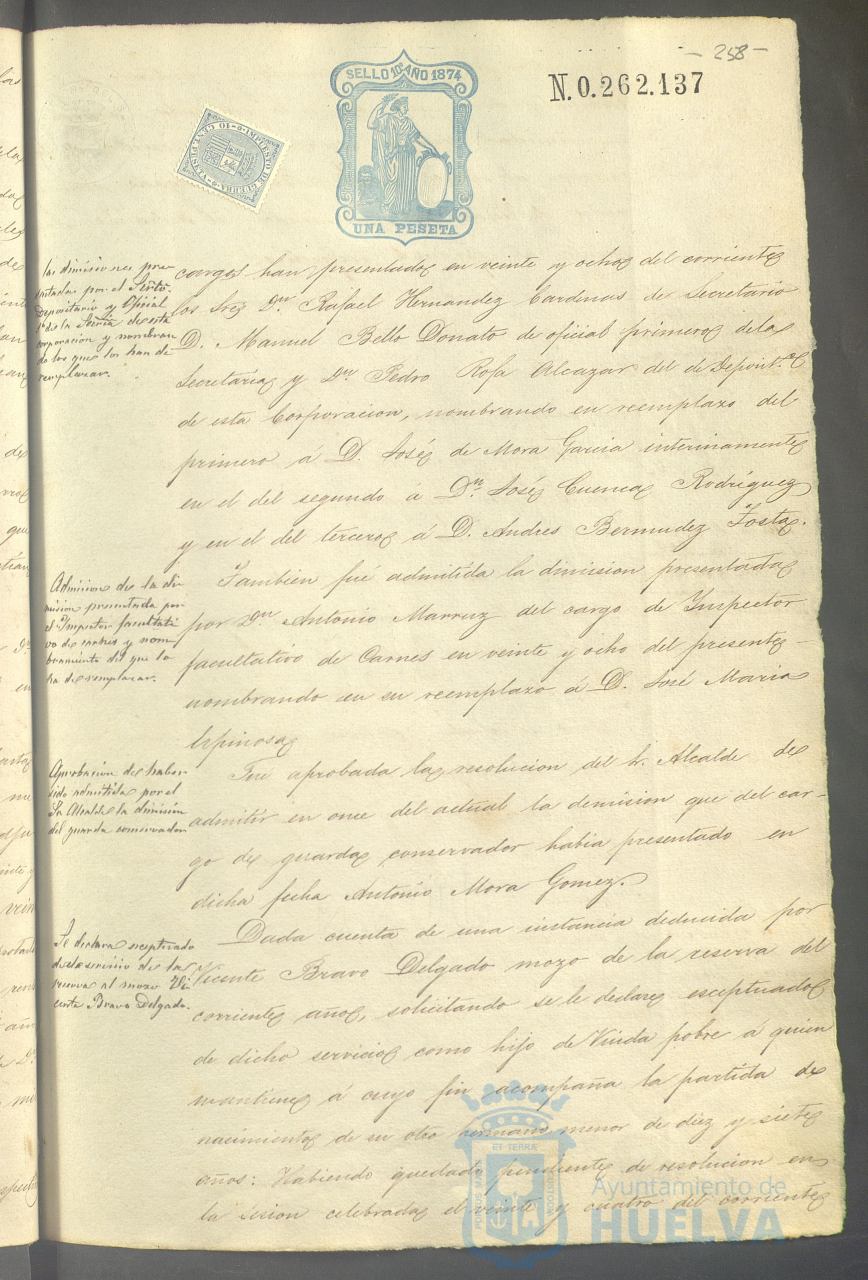 - 258 -
SELLO 10º AÑO 1874
N. 0.262.137
IMPUESTO DE GUERRA
10 CENT. PESETA
UNA PESETA
las dimisiones pre-
sentadas por el Srto.
Depositario y Oficial
1º de la Sria de esta
corporacion y nombran-
do los que los han de
remplazar.
cargos han presentado en veinte y ocho del corriente
los Sres Dn. Rafael Hernandez Cardinas de Secretario
D. Manuel Bello Donato de oficial primero dela
Secretaria y Dn. Pedro Rosa Alcazar del de Deposit.
de esta Corporacion, nombrando en reemplazo del
primero á D. José de Mora Garcia interinamente
en el del segundo á Dn. José Cuenca Rodriguez
y en el del tercero á D. Andres Bermudez
Admision de la di-
mision presentada por
el Inspector facultati-
vo de carnes y nom-
bramiento del que lo
ha de remplazar.
Tambien fué admitida la dimision presentada
por Dn. Antonio Marruz del cargo de Inspector
facultativo de Carnes en veinte y ocho del presente-
nombrando en su reemplazo á D. José Maria
Espinosa
Aprobacion de haber
sido admitida por el
Sr Alcalde la dimision
del guarda conservador
Fué aprobada la resolucion del Sr. Alcalde de
admitir en once del actual la demision que del car-
go de guarda conservador habia presentado en
dicha fecha Antonio Mora Gomez.
Se declara eceptuado
del servicio de la
reserva al mozo Vi-
cente Bravo Delgado.
Dada cuenta de una instancia deducida por
Vicente Bravo Delgado mozo de la reserva del
corriente año, solicitando se le declare esceptuado
de dicho servicio como hijo de Viuda pobre á quien
mantiene á cuyo fin acompaña la partida de
nacimiento de su otro hermano menor de diez y siete
años: Habiendo quedado pendiente de resolucion en
la sesion celebrada el veinte y cuatro del corriente
PORTUS MARIS
ET TERRÆ
CUSTODIA
Ayuntamiento de
HUELVA